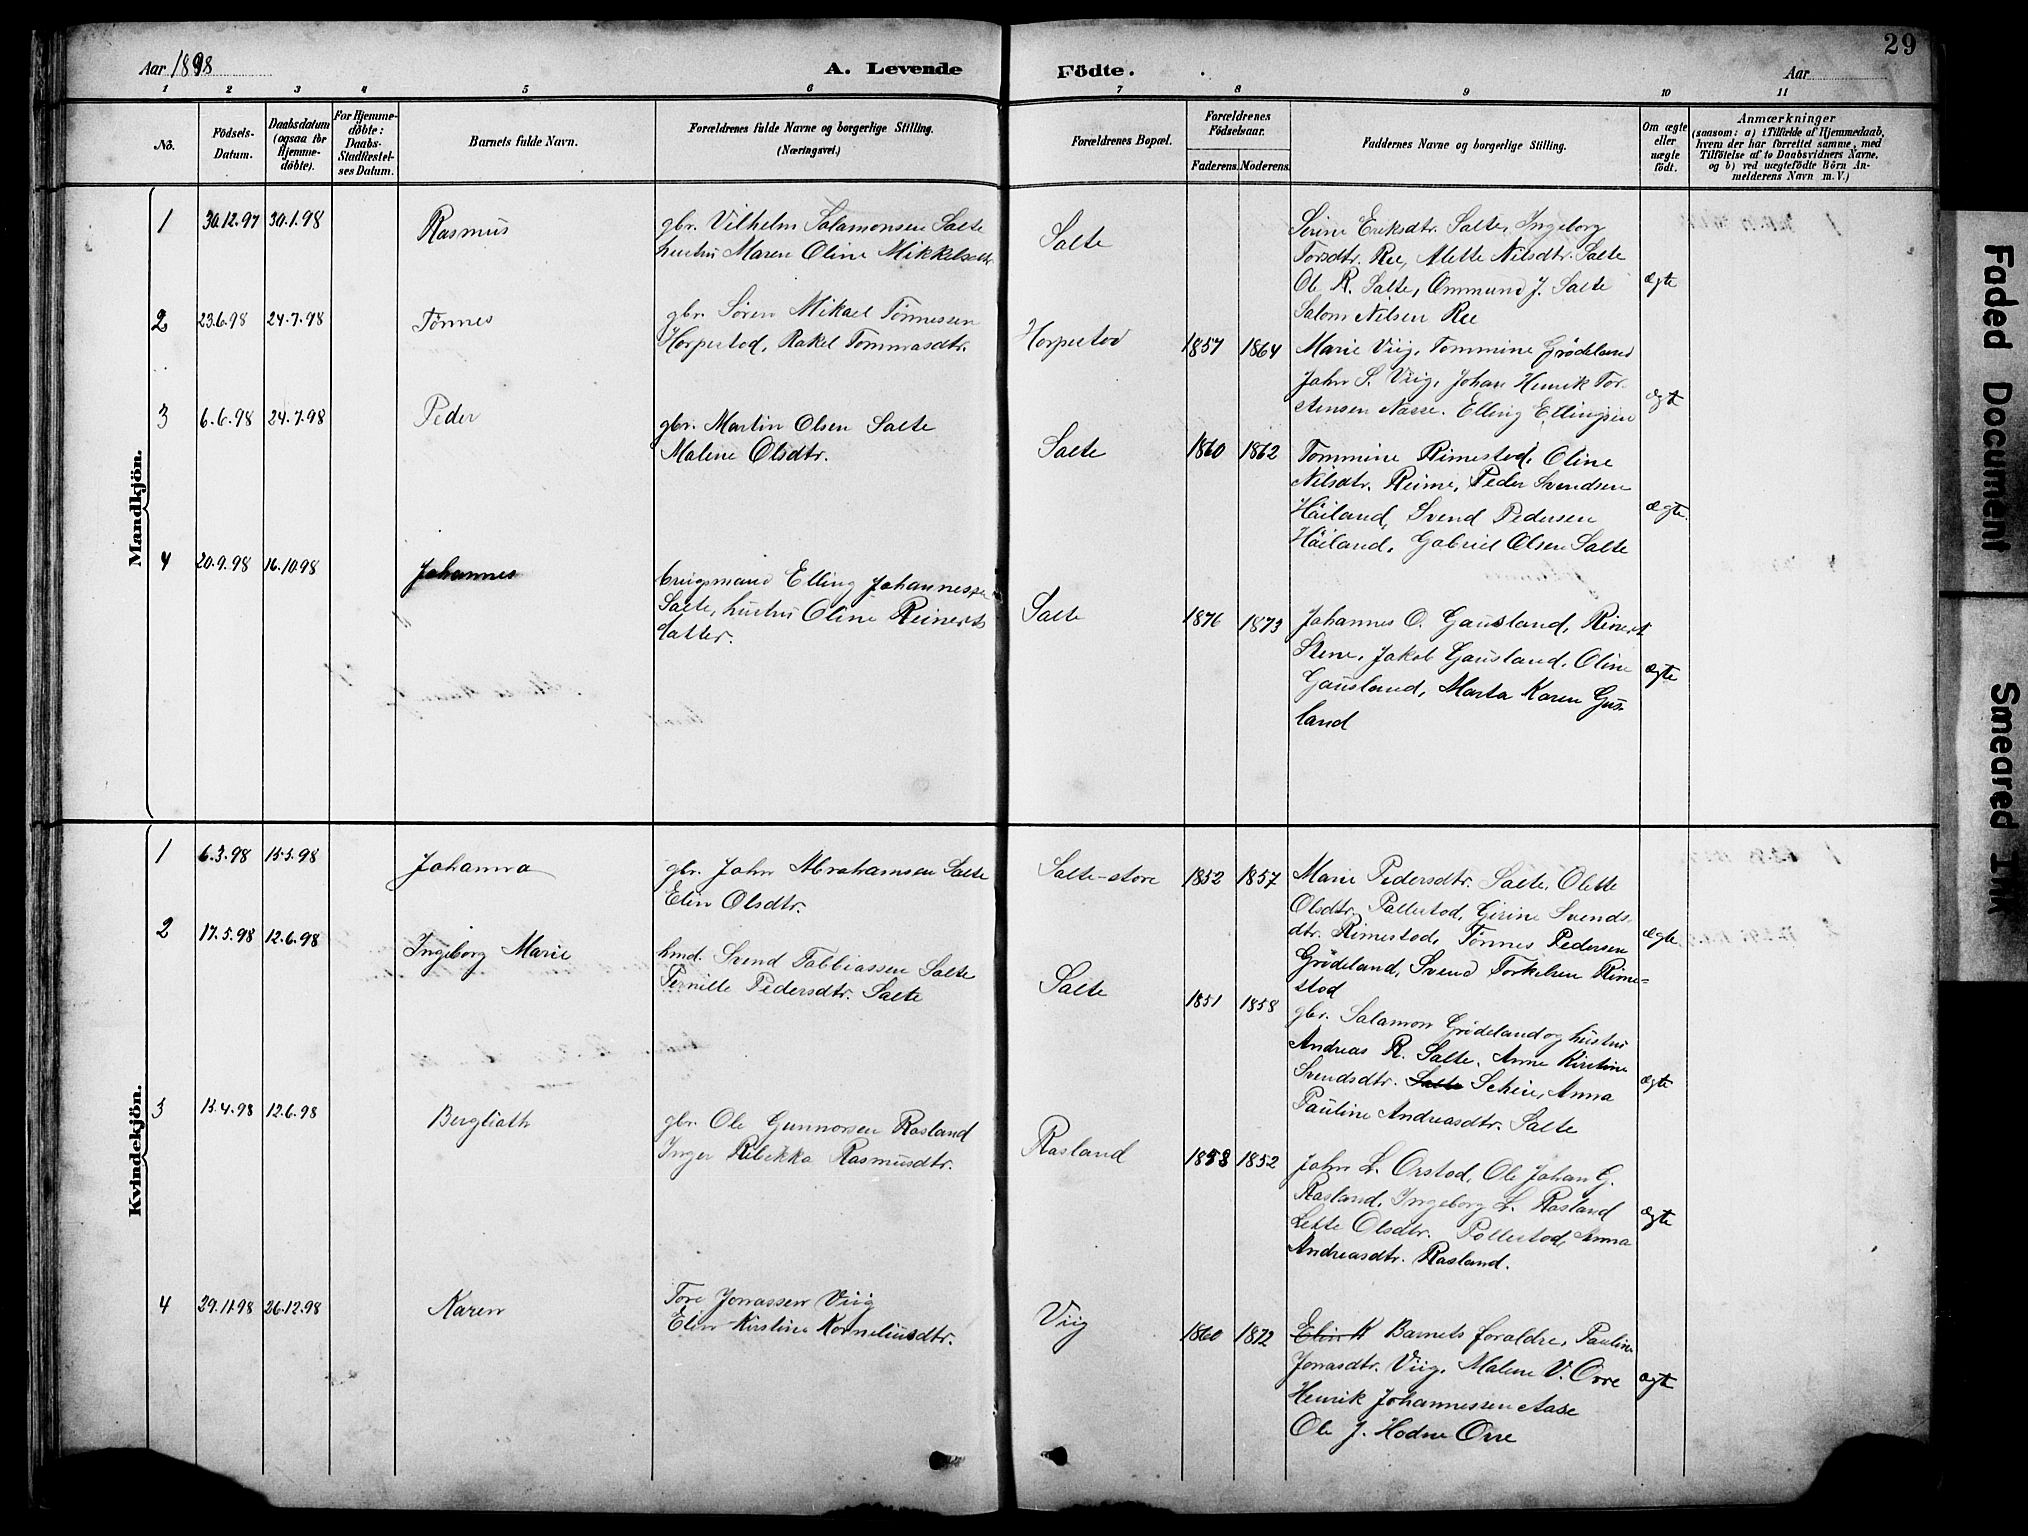 Aar 1898
A. Levende Födte.
Aar
29
1 2 3 4 5 6 7 8 9 10 11
No.
Födsels-Datum.
Daabsdatum (ogsaa for Hjemme-döbte).
For Hjemme-döbte: Daabs-Stadfæstel-ses Datum.
Barnets fulde Navn.
Forældrenes fulde Navne og borgerlige Stilling. (Næringsvei.)
Forældrenes Bopæl.
Forældrenes Födselsaar.
Faderens. Moderens.
Faddernes Navne og borgerlige Stilling.
Om ægte eller uægte födt.
Anmærkninger
(saasom: a) i Tilfælde af Hjemmedaab, hvem der har forrettet samme, med Tilföielse af to Daabsvidners Navne, og b) ved uægtefödte Börn An-melderens Navn m. V.)
Mandkjön.
1 30.12.97 30.1.98 Rasmus
gbr. Vilhelm Salamonsen Salte
hustru Maren Oline Mikkelsdtr.
Salte
Serine Eriksdtr. Salte, Ingeborg
Torsdtr. Ree, Alette Nilsdtr. Salte
Ole R. Salte, Ommund J. Salte
Salom. Nilsen Ree
ægte
2 23.6.98 24.7.98 Tønnes
gbr. Søren Mikael Tønnessen
Horpestad, Rakel Tommasdtr.
Horpestad 1857 1864
Marie Viig, Tommine Grødeland
John S. Viig, Johan Henrik Tor-
stensen Nasse. Elling Ellingsen
ægt
3 6.6.98 24.7.98 Peder
gbr. Martin Olsen Salte
Malene Olsdtr.
Salte 1860 1862
Tommine Rimestad, Oline
Nilsdtr. Reime, Peder Svendsen
Häiland, Svend Pedersen
Häiland, Gabriel Olsen Salte
ægte.
4 20.9.98 16.10.98 Johannes
brugsmand Elling Johannessen
Salte, hustru Oline Reinerts
datter.
Salte 1876 1873
Johannes O. Gausland, Reinert
Stene, Jakob Gausland, Oline
Gausland, Marta Karen Gus-
land
ægte
Kvindekjön.
1 6.3.98 15.5.98 Johanna
gbr. John Abrahamsen Salte
Elin Olsdtr.
Salte-store 1852 1857
Marie Pedersdtr. Salte, Olette
Olsdtr. Pollestad, Girine Svends
dtr. Rimestad, Tønnes Pedersen
Grödeland, Svend Torkelsen Rime-
stad
ægte
2 17.5.98 12.6.98 Ingeborg Marie
hmd. Svend Tabbiassen Salte
Pernille Pedersdtr. Salte
Salte 1851 1858
gbr. Salamon Grödeland og hustru
Andreas R. Salte, Anne Kirstine
Svendsdtr. Salte Scheie, Anna
Pauline Andreasdtr. Salte
ægte
3 15.4.98 12.6.98 Berglioth
gbr. Ole Gunnarsen Rosland
Inger Rebekka Rasmusdtr.
Rosland 1858 1852
John L. Orstad, Ole Johan G.
Rosland, Ingeborg L. Rosland
Lette Olsdtr. Pollestad, Anna
Andreasdtr. Rosland.
ægte
4 29.11.98 26.12.98 Karen
Tore Jonassen Viig
Elin Kirstine Korneliusdtr.
Viig 1860 1872
Elin K Barnets foraldre, Pauline
Jonasdtr. Viig, Malene V. Orre
Henrik Johannessen Aase
Ole J. Hodne Orre
ægte
Faded Document
Smeared Ink